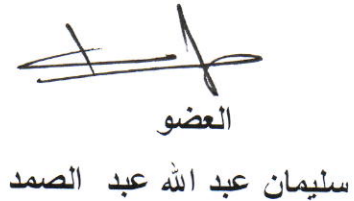 العضو
سليمان عبد الله عبد الصمد